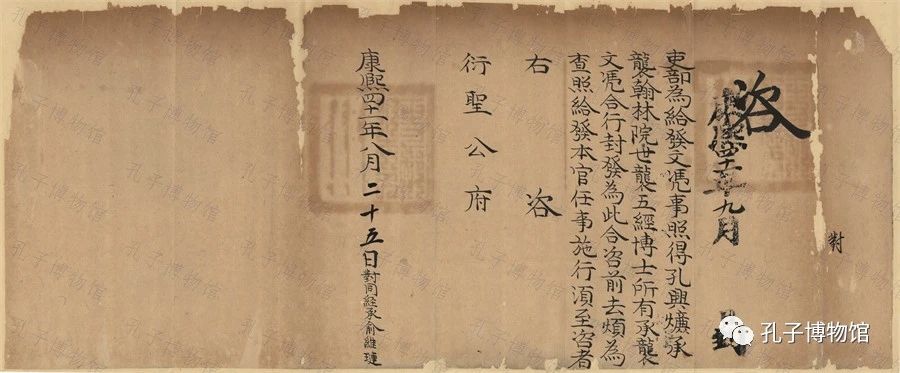 對
咨
康熙四十一年九月
吏部為給發文憑事照得孔興爌承
襲翰林院世襲五經博士所有承襲
文憑合行封發為此合咨前去煩為
查照給發本官任事施行須至咨者
右咨
衍聖公府
康熙四十一年八月二十五日對同經承俞維璉
孔子博物馆